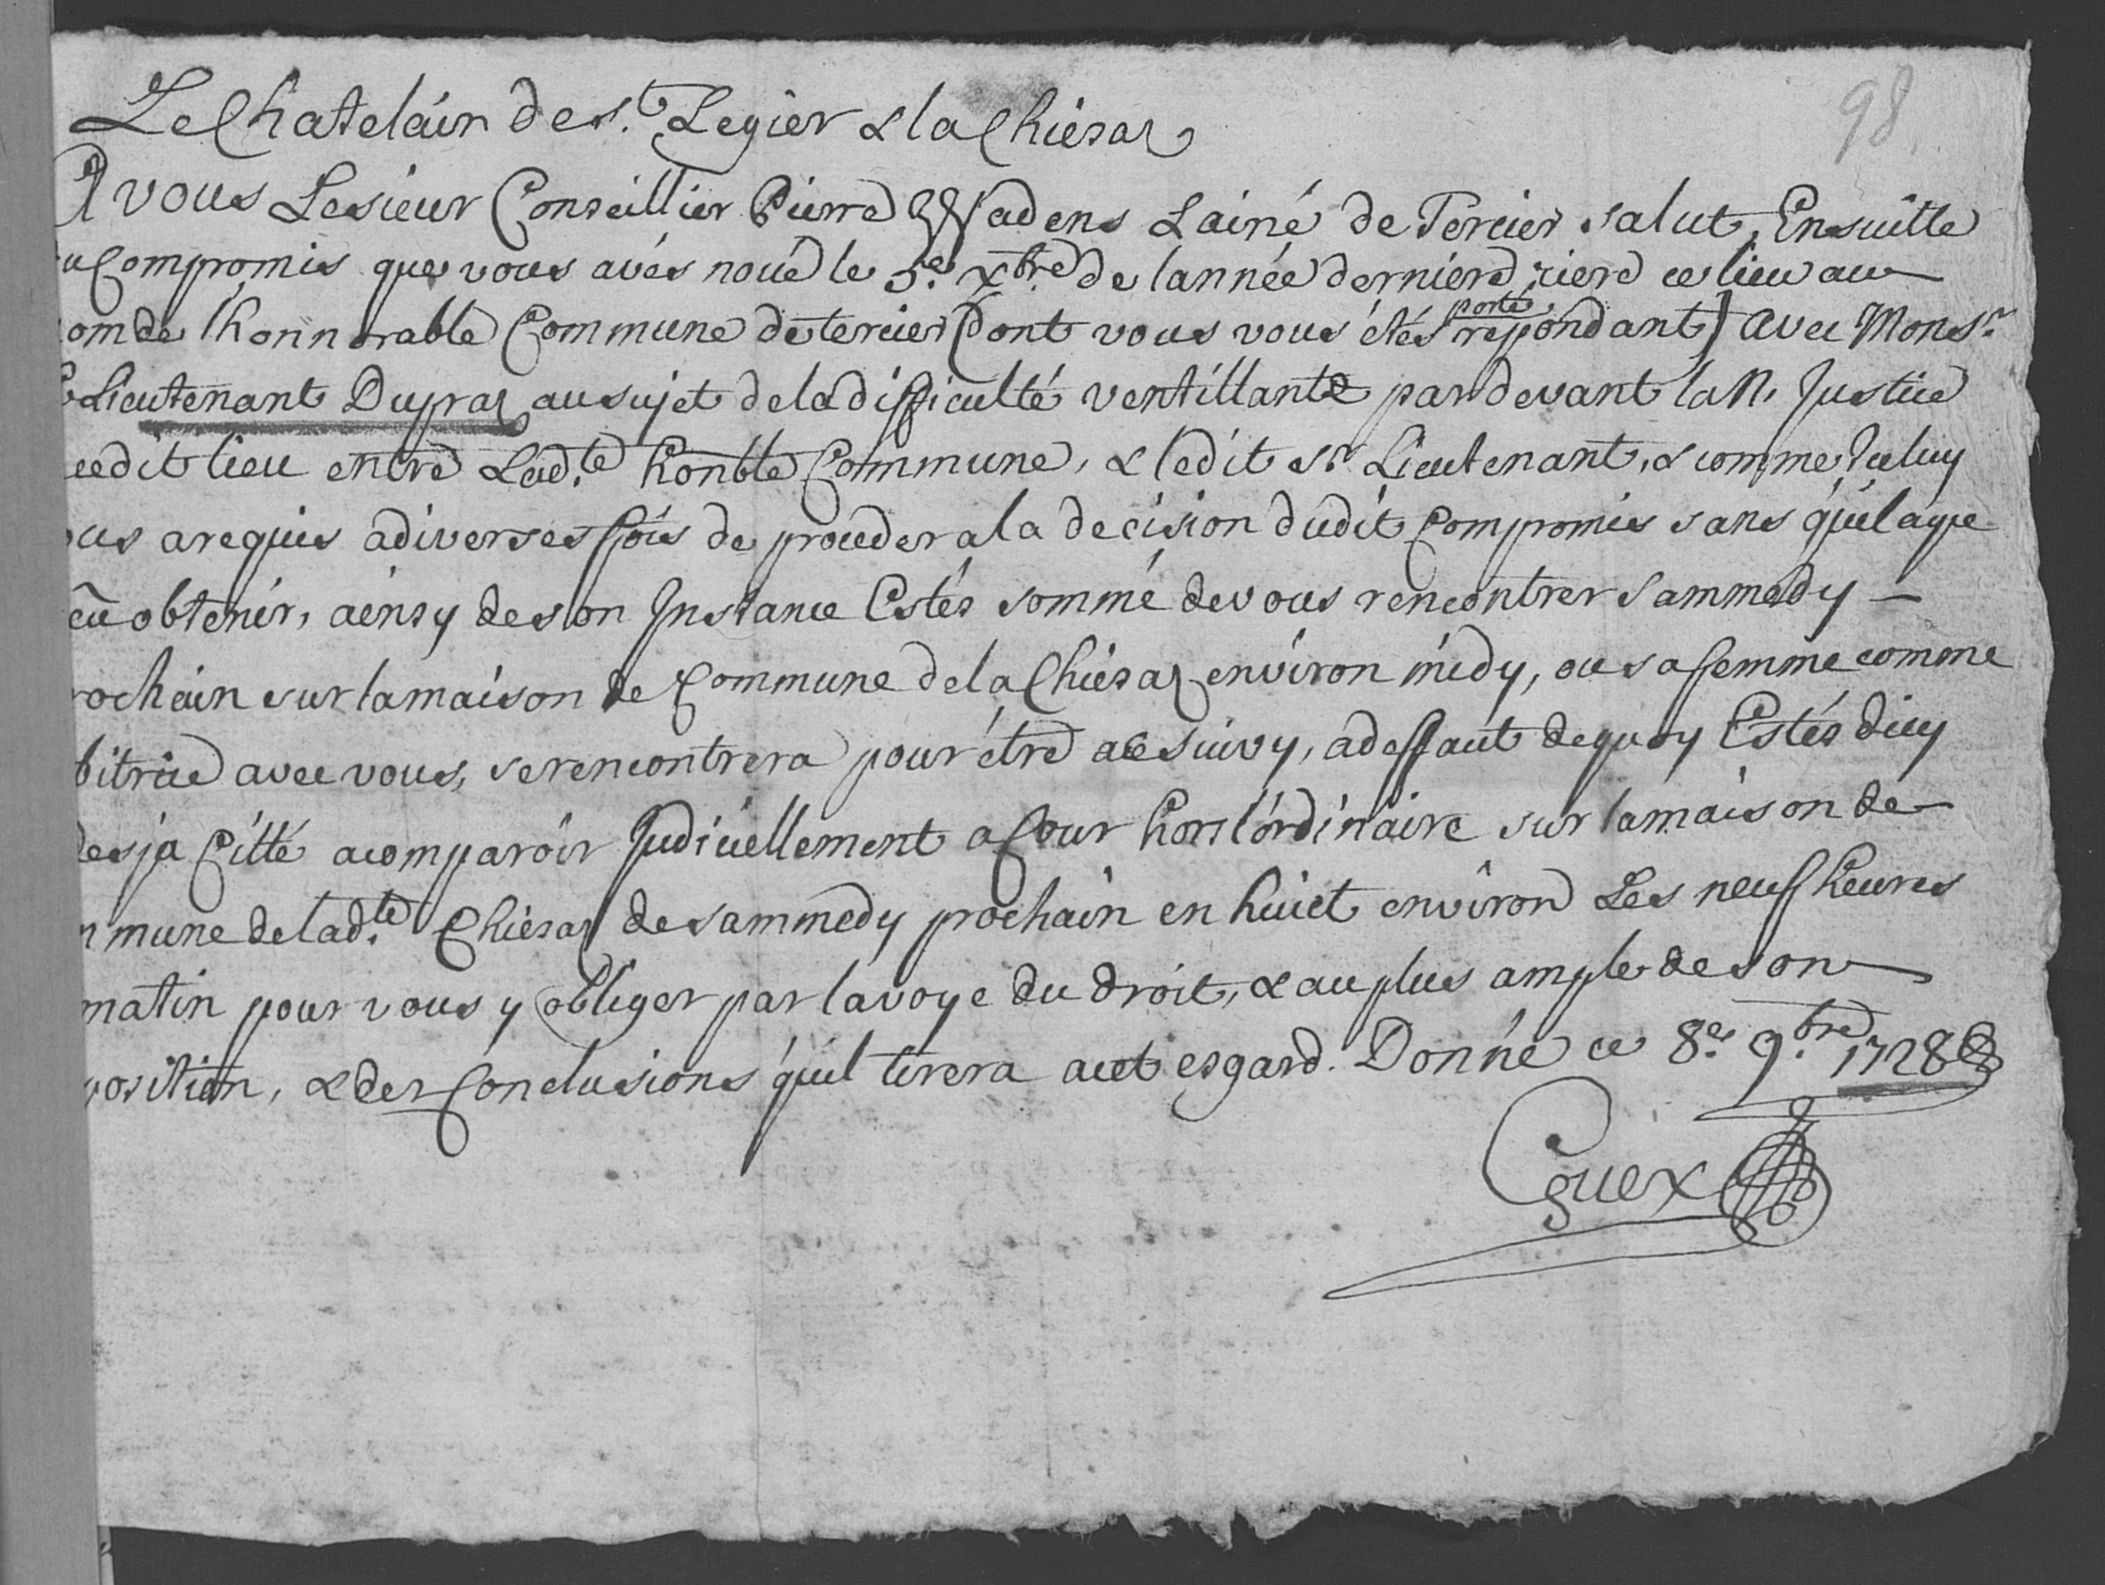 98
Le Chatelain de St. Legier & la Chiesaz
A vous Le sieur Conseillier Pierre Wadens Lainé de Tercier salut, Ensuitte
u Compromis que vous avés noué le 5e. Xbre. de lannée derniere, riere ce lieu au
om de lhonnorable Commune de tercier (Dont vous vous étés porté repondant) avec Monsr.
Lieutenant Dupraz au sujet de la difficulté ventillante par devant la N. Justice
cedit lieu entre Ladte. honble Commune, & ledit Sr. Lieutenant, & comme Iceluy
ous a requis a diverses fois de proceder a la decision dudit Compromis sans quil aye
eu obtenir, ainsy de son Instance Estés sommé de vous rencontrer Sammedy
rochain sur la maison de Commune de la Chiesaz environ midy, ou sa femme comme
bitrice avec vous, se rencontrera pour être ace suivy, a deffaut de quoy Estés dicy
desja Citté a comparoir Judiciellement a Cour hors lordinaire sur la maison de
mmune de ladte. Chiesaz de sammedy prochain en huict environ Les neuf heures
matin pour vous y obliger par la voye du droit, & au plus ample de son
position, & des Conclusions quil tirera acet esgard. Donné ce 8e. 9bre. 1728
Guex